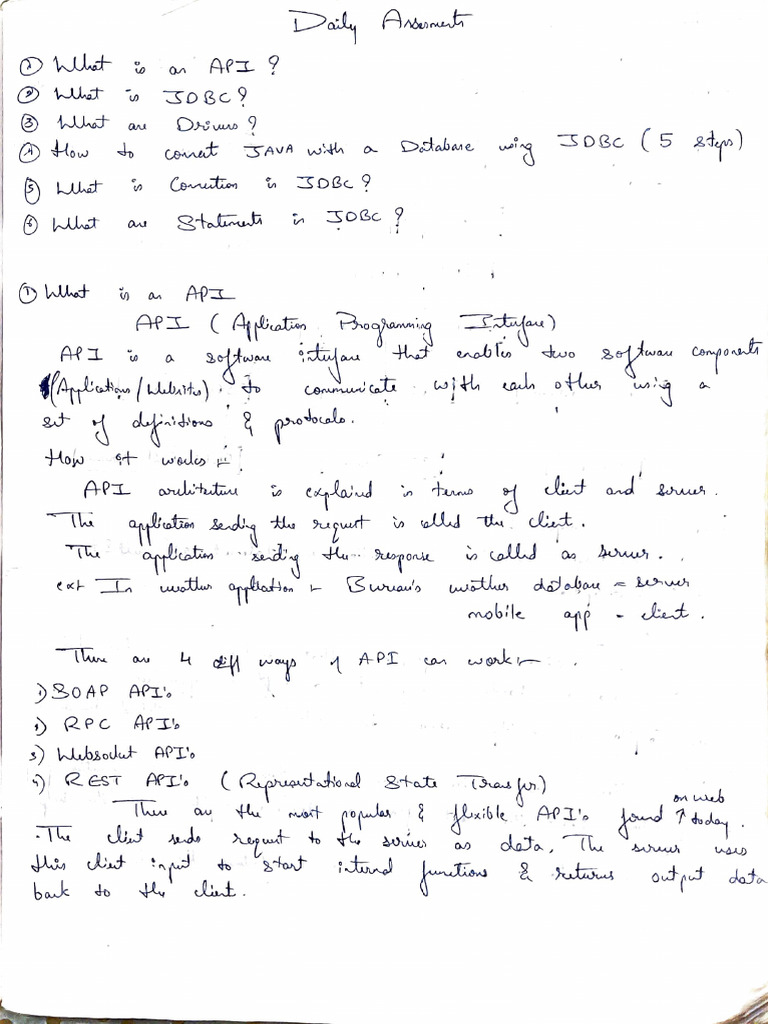 Daily Assesments
① What is an API ?
② What is JDBC ?
③ What are Drivers ?
④ How to connect JAVA with a Database using JDBC ( 5 steps)
⑤ What is Connection in JDBC ?
⑥ What are Statements in JDBC ?
① What is an API
API ( Application Programming Interface)
API is a software interface that enables two software components
(Applications / Websites) to communicate with each other using a
set of definitions & protocols.
How it works :-
API architecture is explained in terms of client and server.
The application sending the request is called the client.
The application sending the response is called as server.
ex: In weather application :- Bureau's weather database = server
mobile app - client.
There are 4 diff ways of API can work :-
1) SOAP API's
2) RPC API's
3) Websocket API's
4) REST API's ( Representational State Transfer)
These are the most popular & flexible API's found ↑ on web today.
The client sends request to the server as data. The server uses
this client input to start internal functions & returns output data
back to the client.